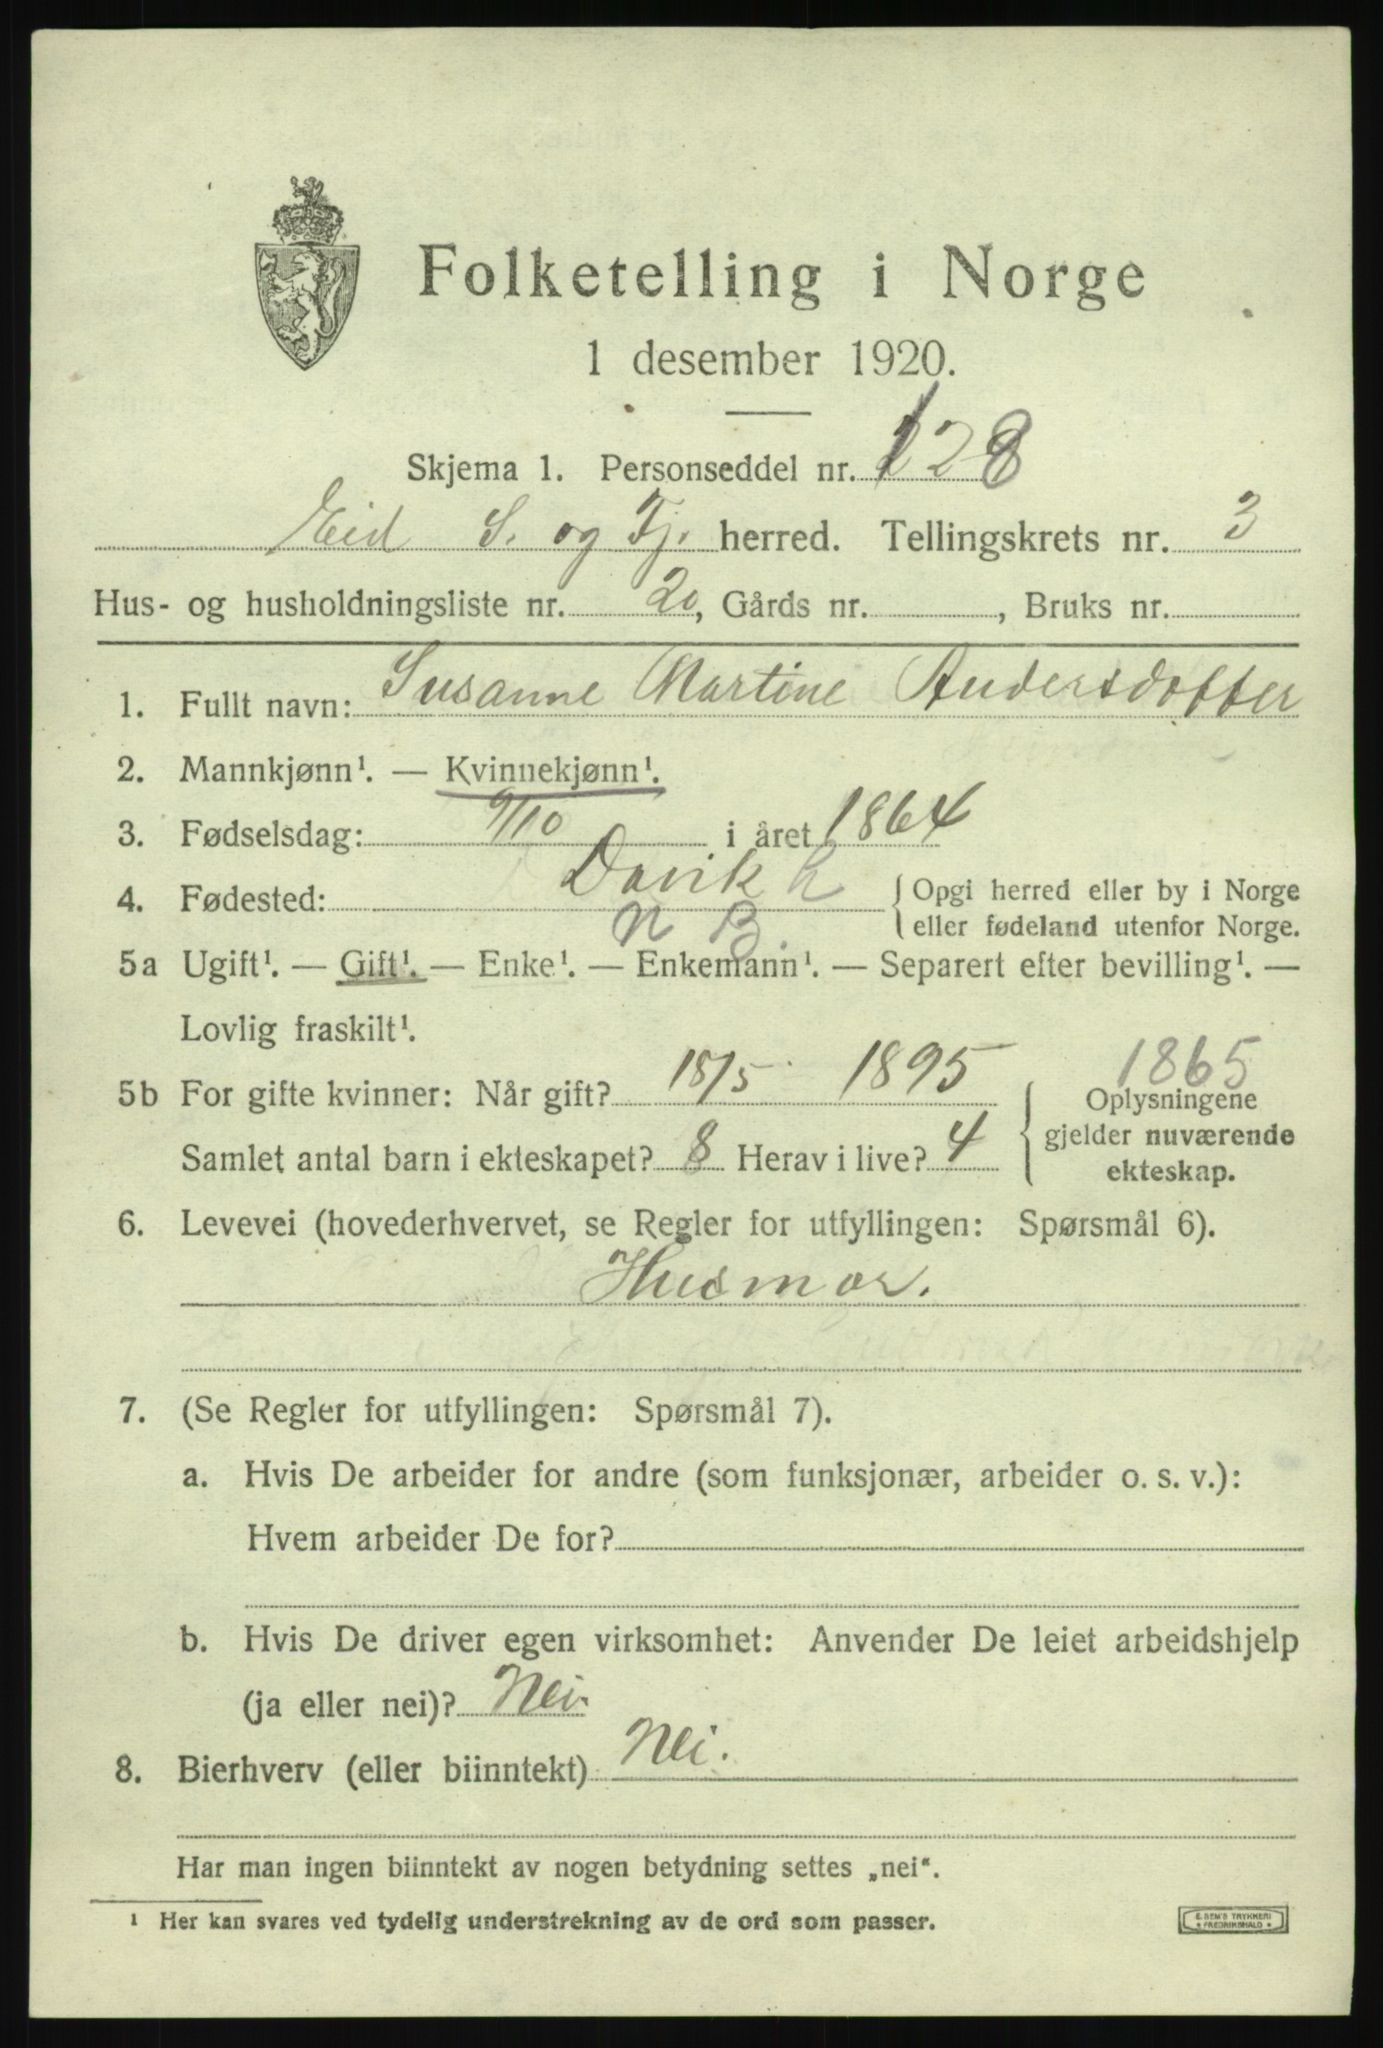 Folketelling i Norge
1 desember 1920.
Skjema 1. Personseddel nr. 128
Eid S. og Fj. herred. Tellingskrets nr. 3
Hus- og husholdningsliste nr. 20, Gårds nr. , Bruks nr.
1. Fullt navn: Susanne Martine Andersdotter
2. Mannkjønn¹. — Kvinnekjønn¹.
3. Fødselsdag: 9/10 i året 1864
4. Fødested: Davik h { Opgi herred eller by i Norge
N B. eller fødeland utenfor Norge.
5a Ugift¹. — Gift¹. — Enke¹. — Enkemann¹. — Separert efter bevilling¹. —
Lovlig fraskilt¹.
5b For gifte kvinner: Når gift? 18/5 1895 1865
Oplysningene
gjelder nuværende
ekteskap.
Samlet antal barn i ekteskapet? 8 Herav i live? 4
6. Levevei (hovederhvervet, se Regler for utfyllingen: Spørsmål 6).
Husmor.
7. (Se Regler for utfyllingen: Spørsmål 7).
a. Hvis De arbeider for andre (som funksjonær, arbeider o. s. v.):
Hvem arbeider De for?
b. Hvis De driver egen virksomhet: Anvender De leiet arbeidshjelp
(ja eller nei)? Nei.
8. Bierhverv (eller biinntekt) Nei.
Har man ingen biinntekt av nogen betydning settes „nei“.
¹ Her kan svares ved tydelig understrekning av de ord som passer.
E. SEM'S TRYKKERI
FREDRIKSHALD